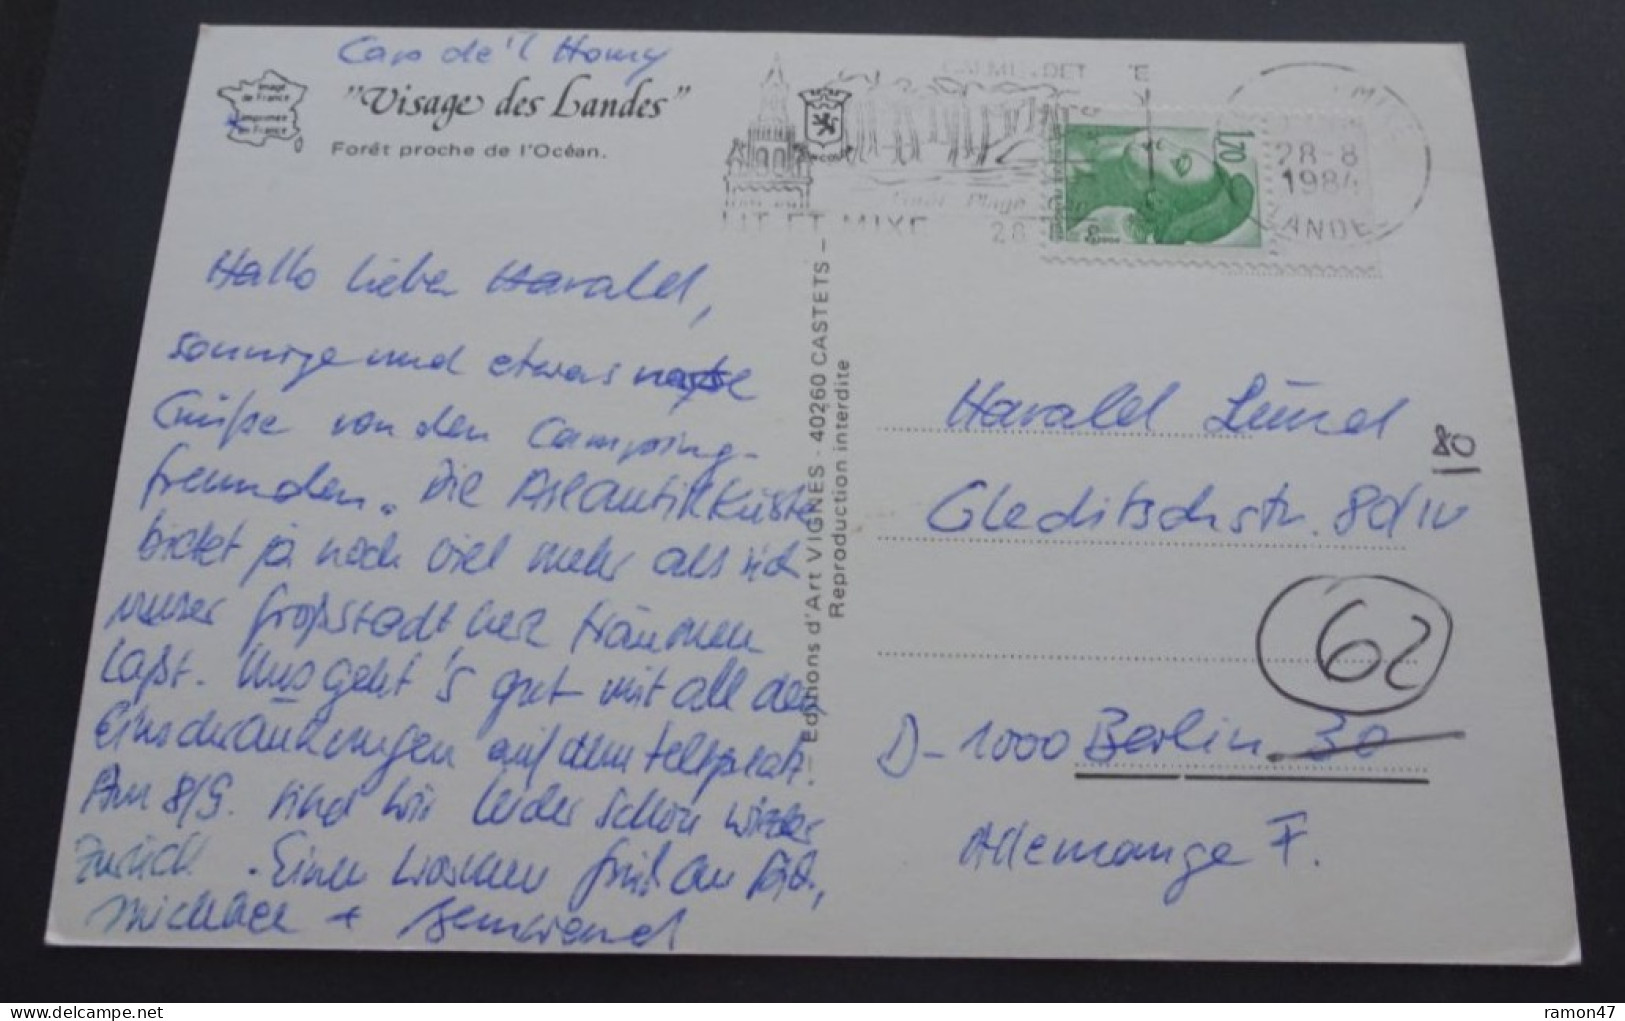 Cap de'l Homy
"Visage des Landes"
Forêt proche de l'Océan.
Image
de France
Imprimée
en France
LIT ET MIXE
Forêt Plage
28
28-8
1984
LANDES
1,70
Hallo lieber Harald,
sonnige und etwas
Grüße von den Camping-
freunden. Die Atlantikküste
bietet ja noch viel mehr als sich
unser Großstadtherz träumen
laßt. Uns geht's gut mit all den
Einschränkungen auf dem Zeltplatz.
Am 8/9. sind wir leider schon wieder
zurück. Einen
Michael +
Editions d'Art VIGNES - 40260 CASTETS -
Reproduction interdite
Harald
80
Gleditschstr. 80/IV
62
D-1000 Berlin 30
Allemange F.
ramon47